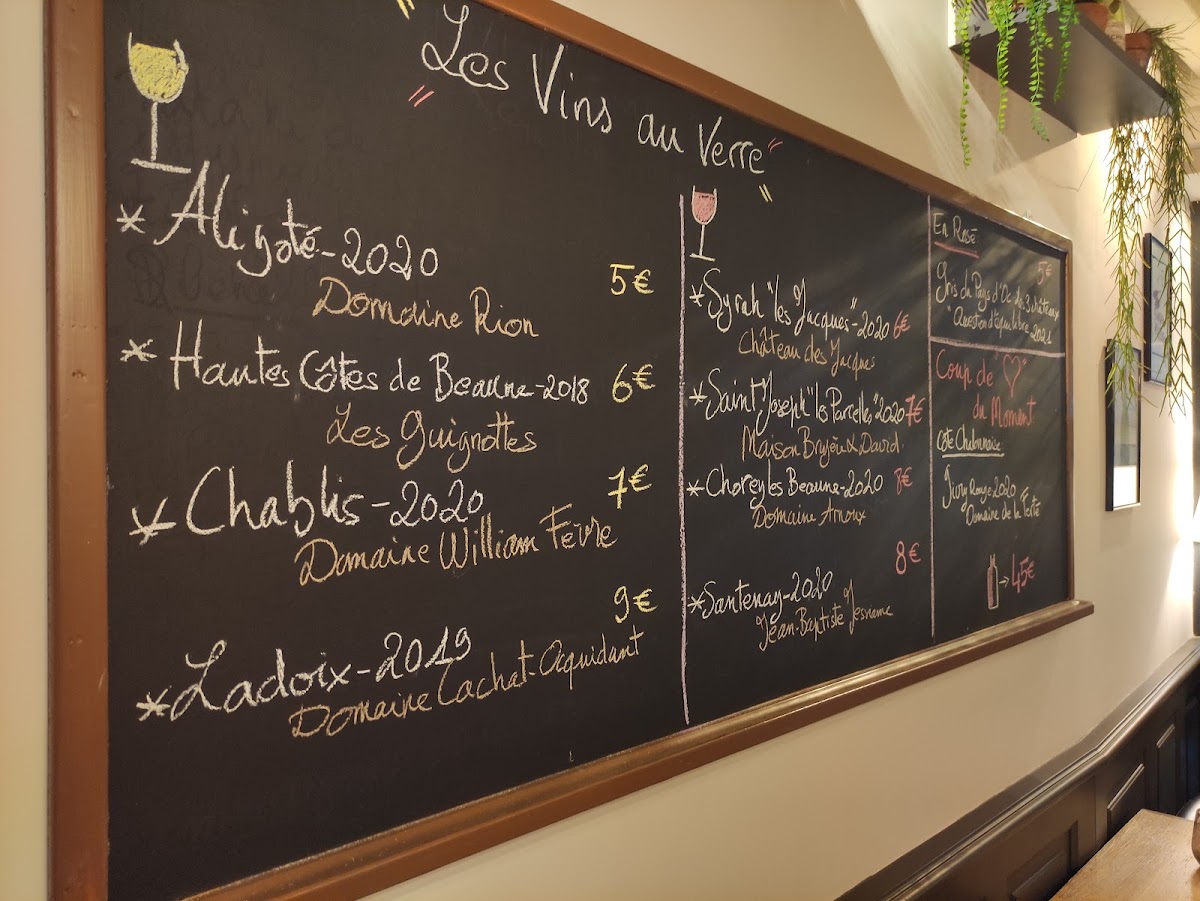 "Les Vins au Verre"
* Aligoté - 2020
5€
Domaine Rion
* Hautes Côtes de Beaune - 2018
6€
Les Guignottes
* Chablis - 2020
7€
Domaine William Fèvre
9€
* Ladoix - 2019
Domaine Cachat-Ocquidant
* Syrah "les Jacques" - 2020 6€
Château des Jacques
* Saint Joseph "les Parcelles" 2020 7€
Maison & David
* Choreyles Beaune - 2020 8€
Domaine Arnoux
8€
* Santenay - 2020
Jean-Baptiste
En Rosé
5€
Gris du Pays d'Oc des 3 châteaux
"Question d'équilibre 2021
Coup de ♡
du Moment
Côte Chalonnaise
Givry Rouge 2020
Domaine de la Ferté
→ 45€